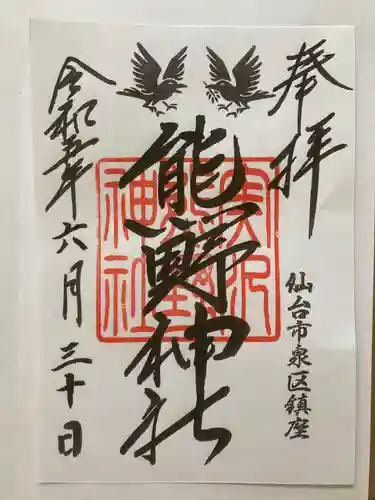 奉拝
仙台市泉区鎮座
熊野神社
令和五年
六月三十日
実沢
神社